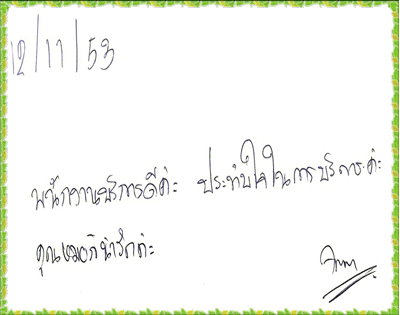 12/11/53
พนักงานบริการดีค่ะ ประทับใจในการบริการค่ะ
คุณหมอก็น่ารักค่ะ